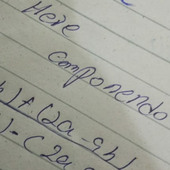 Here
componendo
) + (2a - 9b)
) - (2a